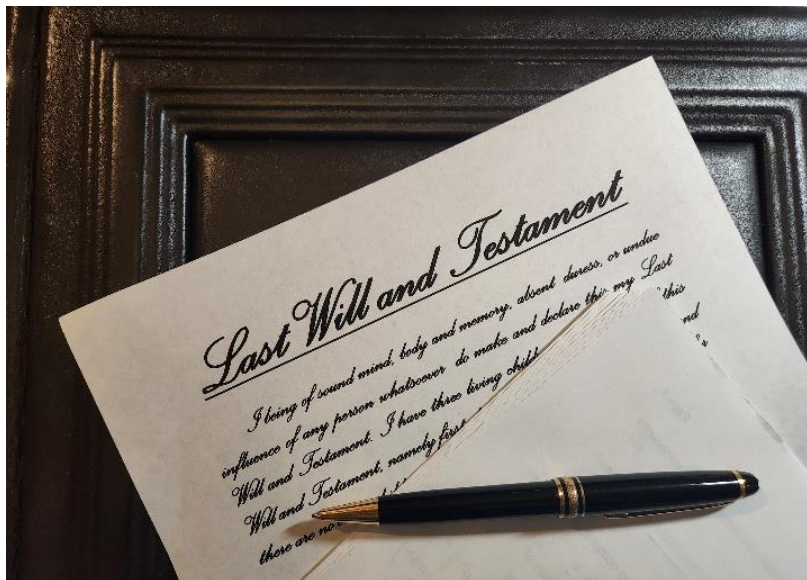 Last Will and Testament
I being of sound mind, body and memory, absent duress, or undue
influence of any person whatsoever do make and declare this my Last
Will and Testament. I have three living child this
Will and Testament, namely first nd
there are no